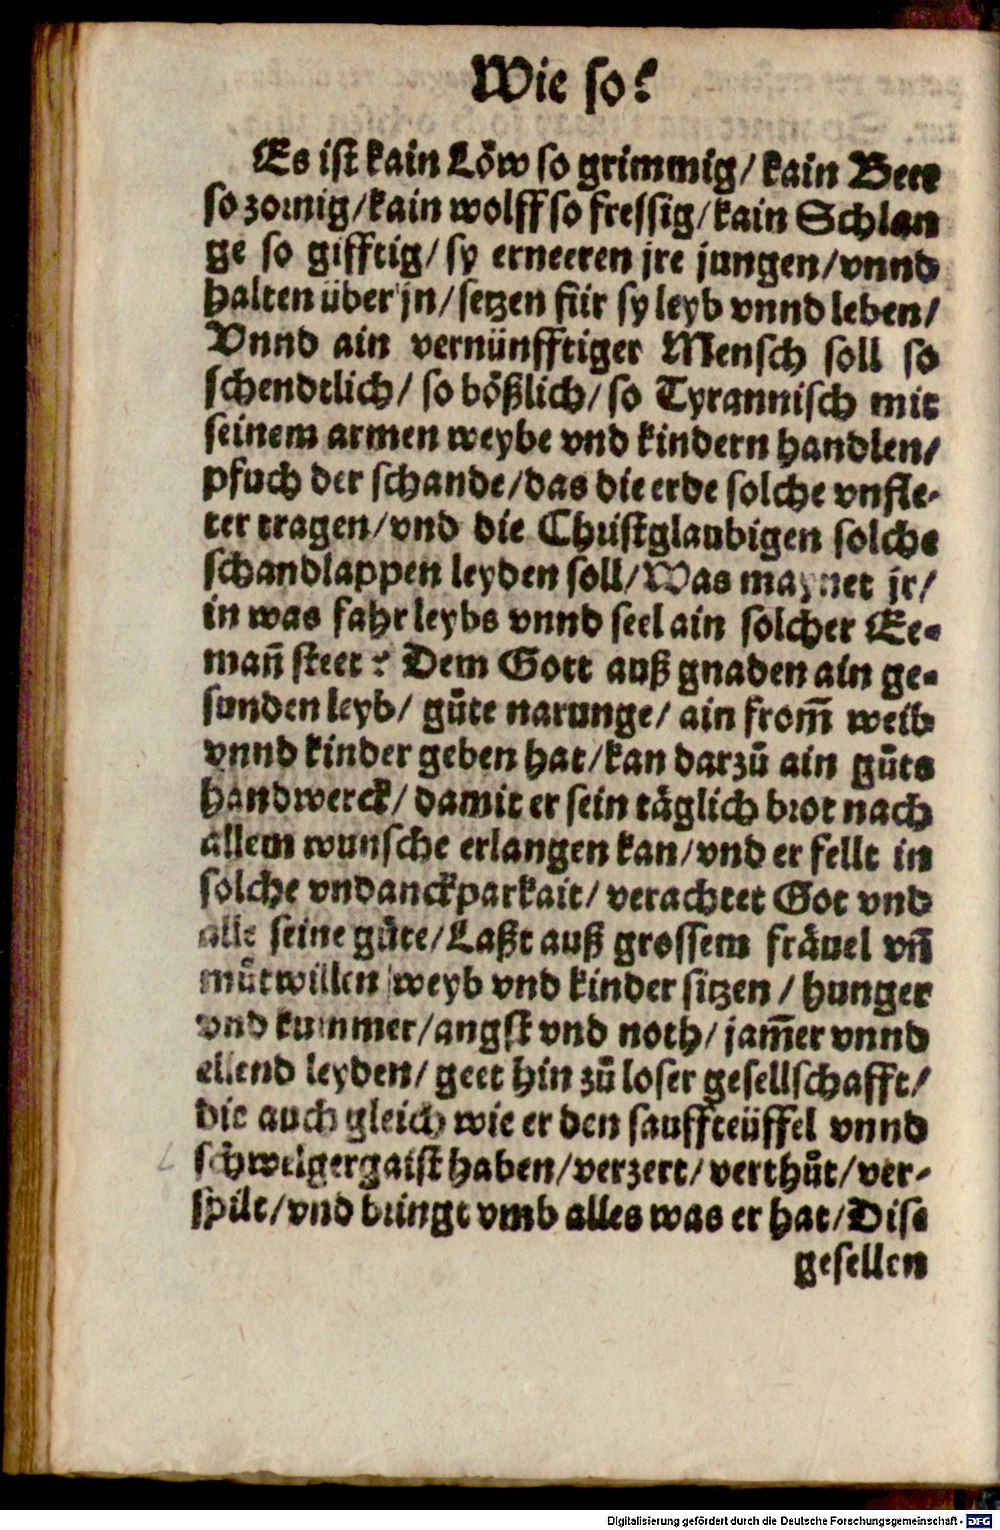 Wie so?
Es ist kain Löw so grimmig/ kain Beer
so zornig/kain wolff so fressig/kain Schlan
ge so gifftig/ sy erneeren jre jungen/vnnd
halten über jn/ setzen für sy leyb vnnd leben/
Vnnd ain vernünfftiger Mensch soll so
schendtlich/ so bößlich/ so Tyrannisch mit
seinem armen weybe vnd kindern handlen/
pfuch der schande/das die erde solche vnfle-
ter tragen/vnd die Christglaubigen solche
schandlappen leyden soll/Was maynet jr/
in was fahr leybs vnnd seel ain solcher Ee-
man̄ steet? Dem Gott auß gnaden ain ge-
sunden leyb/ gůte narunge/ ain from̄ weib
vnnd kinder geben hat/kan darzů ain gůts
handwerck/ damit er sein täglich brot nach
allem wunsche erlangen kan/vnd er fellt in
solche vndanckparkait/ verachtet Got vnd
alle seine gůte/Laßt auß grossem fräuel vn̄
můtwillen weyb vnd kinder sitzen / hunger
vnd kummer/angst vnd noth/ jam̄er vnnd
ellend leyden/ geet hin zů loser gesellschafft/
die auch gleich wie er den sauffteüffel vnnd
schwelgergaist haben/verzert/ verthůt/ver-
spilt/vnd bringt vmb alles was er hat/Dise
gesellen
Digitalisierung gefördert durch die Deutsche Forschungsgemeinschaft - DFG